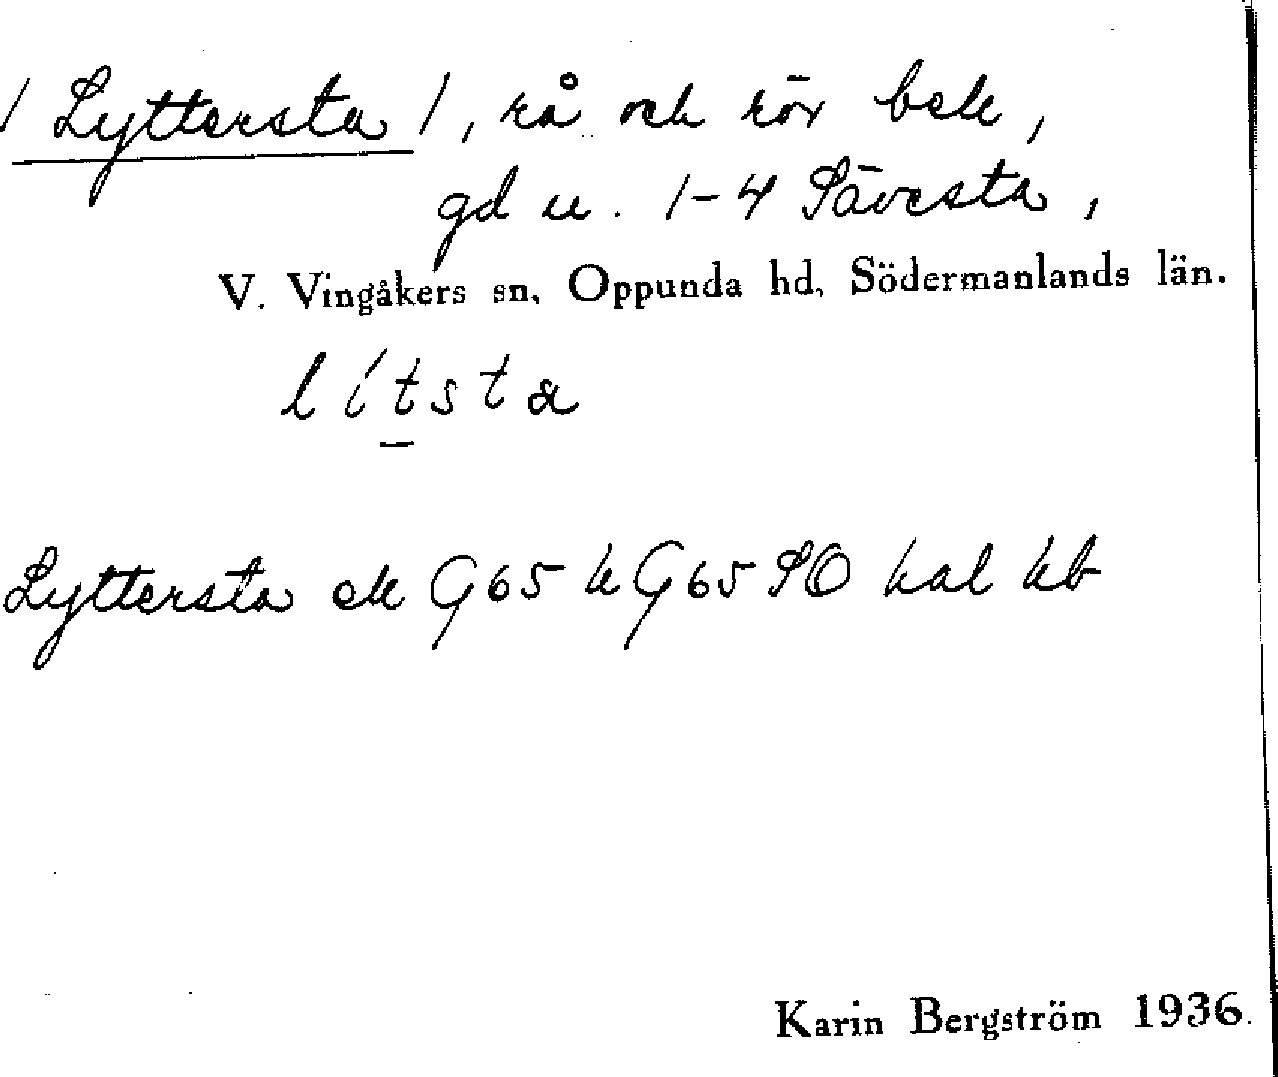 / Lyttersta /, rå och rör bek,
gd u. 1-4 Sävesta,
V. Vingåkers sn, Oppunda hd, Södermanlands län.
lítsta
Lyttersta ek G65 k G65 SO hal kb
Karin Bergström 1936.